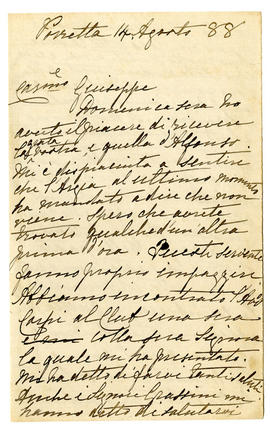 Porretta 14 Agosto 88
Carmo e Giuseppe
Domenica sera ho
avuto il piacere di ricevere
la grata vostra e quella d'Alfonso.
Mi è dispiaciuto a sentire
che l'Argia al ultimo momento
ha mandato a dire che non
viene. Spero che avrete
trovato qualched'un altra
prima d'ora. Queste servente
fanno proprio impazzire
Abbiamo incontrato
Carpi al Club una sera
colla sua Signora
la quale mi ha presentato.
Mi ha detto di farvi tanti saluti.
Anche i Signori Grassini mi
hanno detto di salutarvi